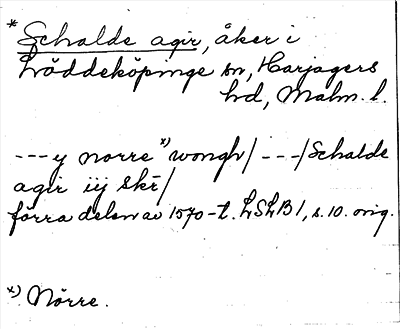 * Schalde agir, åker i
Löddeköpinge sn, Harjagers
hd, Malm. l.
--- y norre x) wongh/ ---/Schalde
agir iij skr/
förra delen av 1570-t. LSLB 1, s. 10. orig.
x) Nörre.